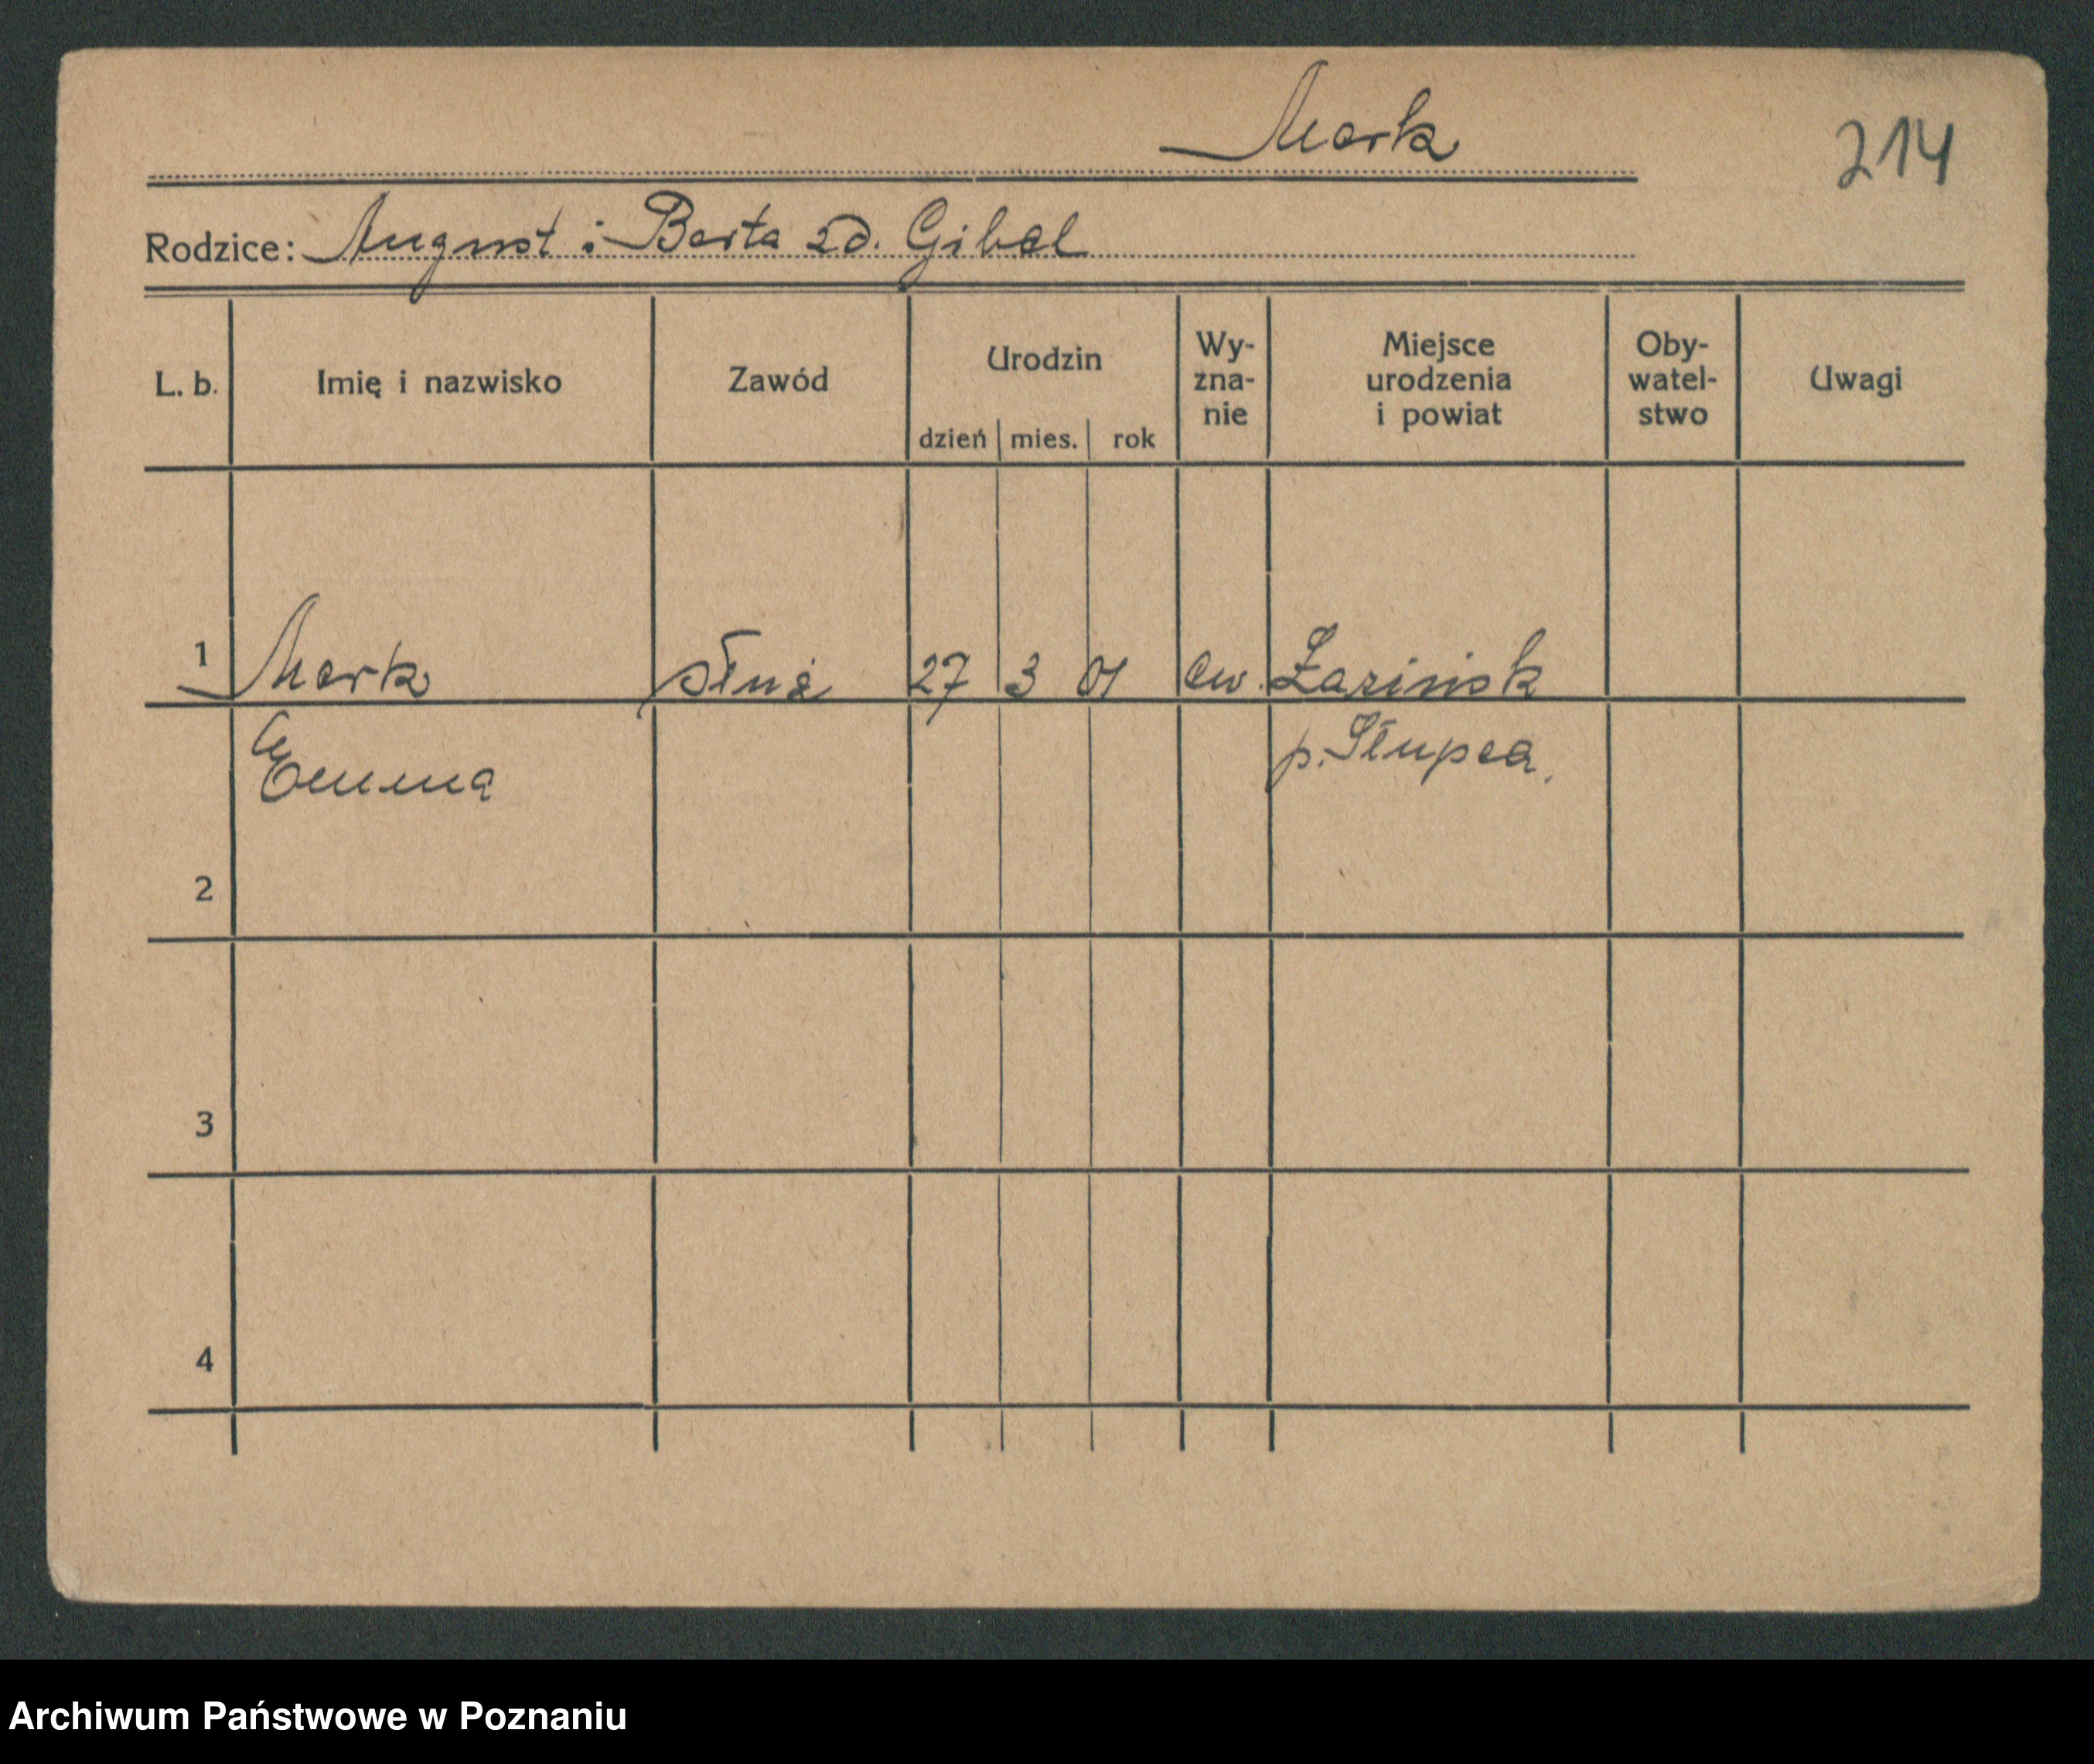 Mark
214
Rodzice: August i Berta zd. Gibel
L. b. Imię i nazwisko Zawód Urodzin dzień mies. rok Wy-zna-nie Miejsce urodzenia i powiat Oby-watel-stwo Uwagi
1 Mark służ 27 3 01 ew. Łazińsk
Emma p. Słupca.
2
3
4
Archiwum Państwowe w Poznaniu